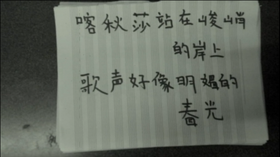 喀秋莎站在峻峭
的岸上
歌声好像明媚的
春光